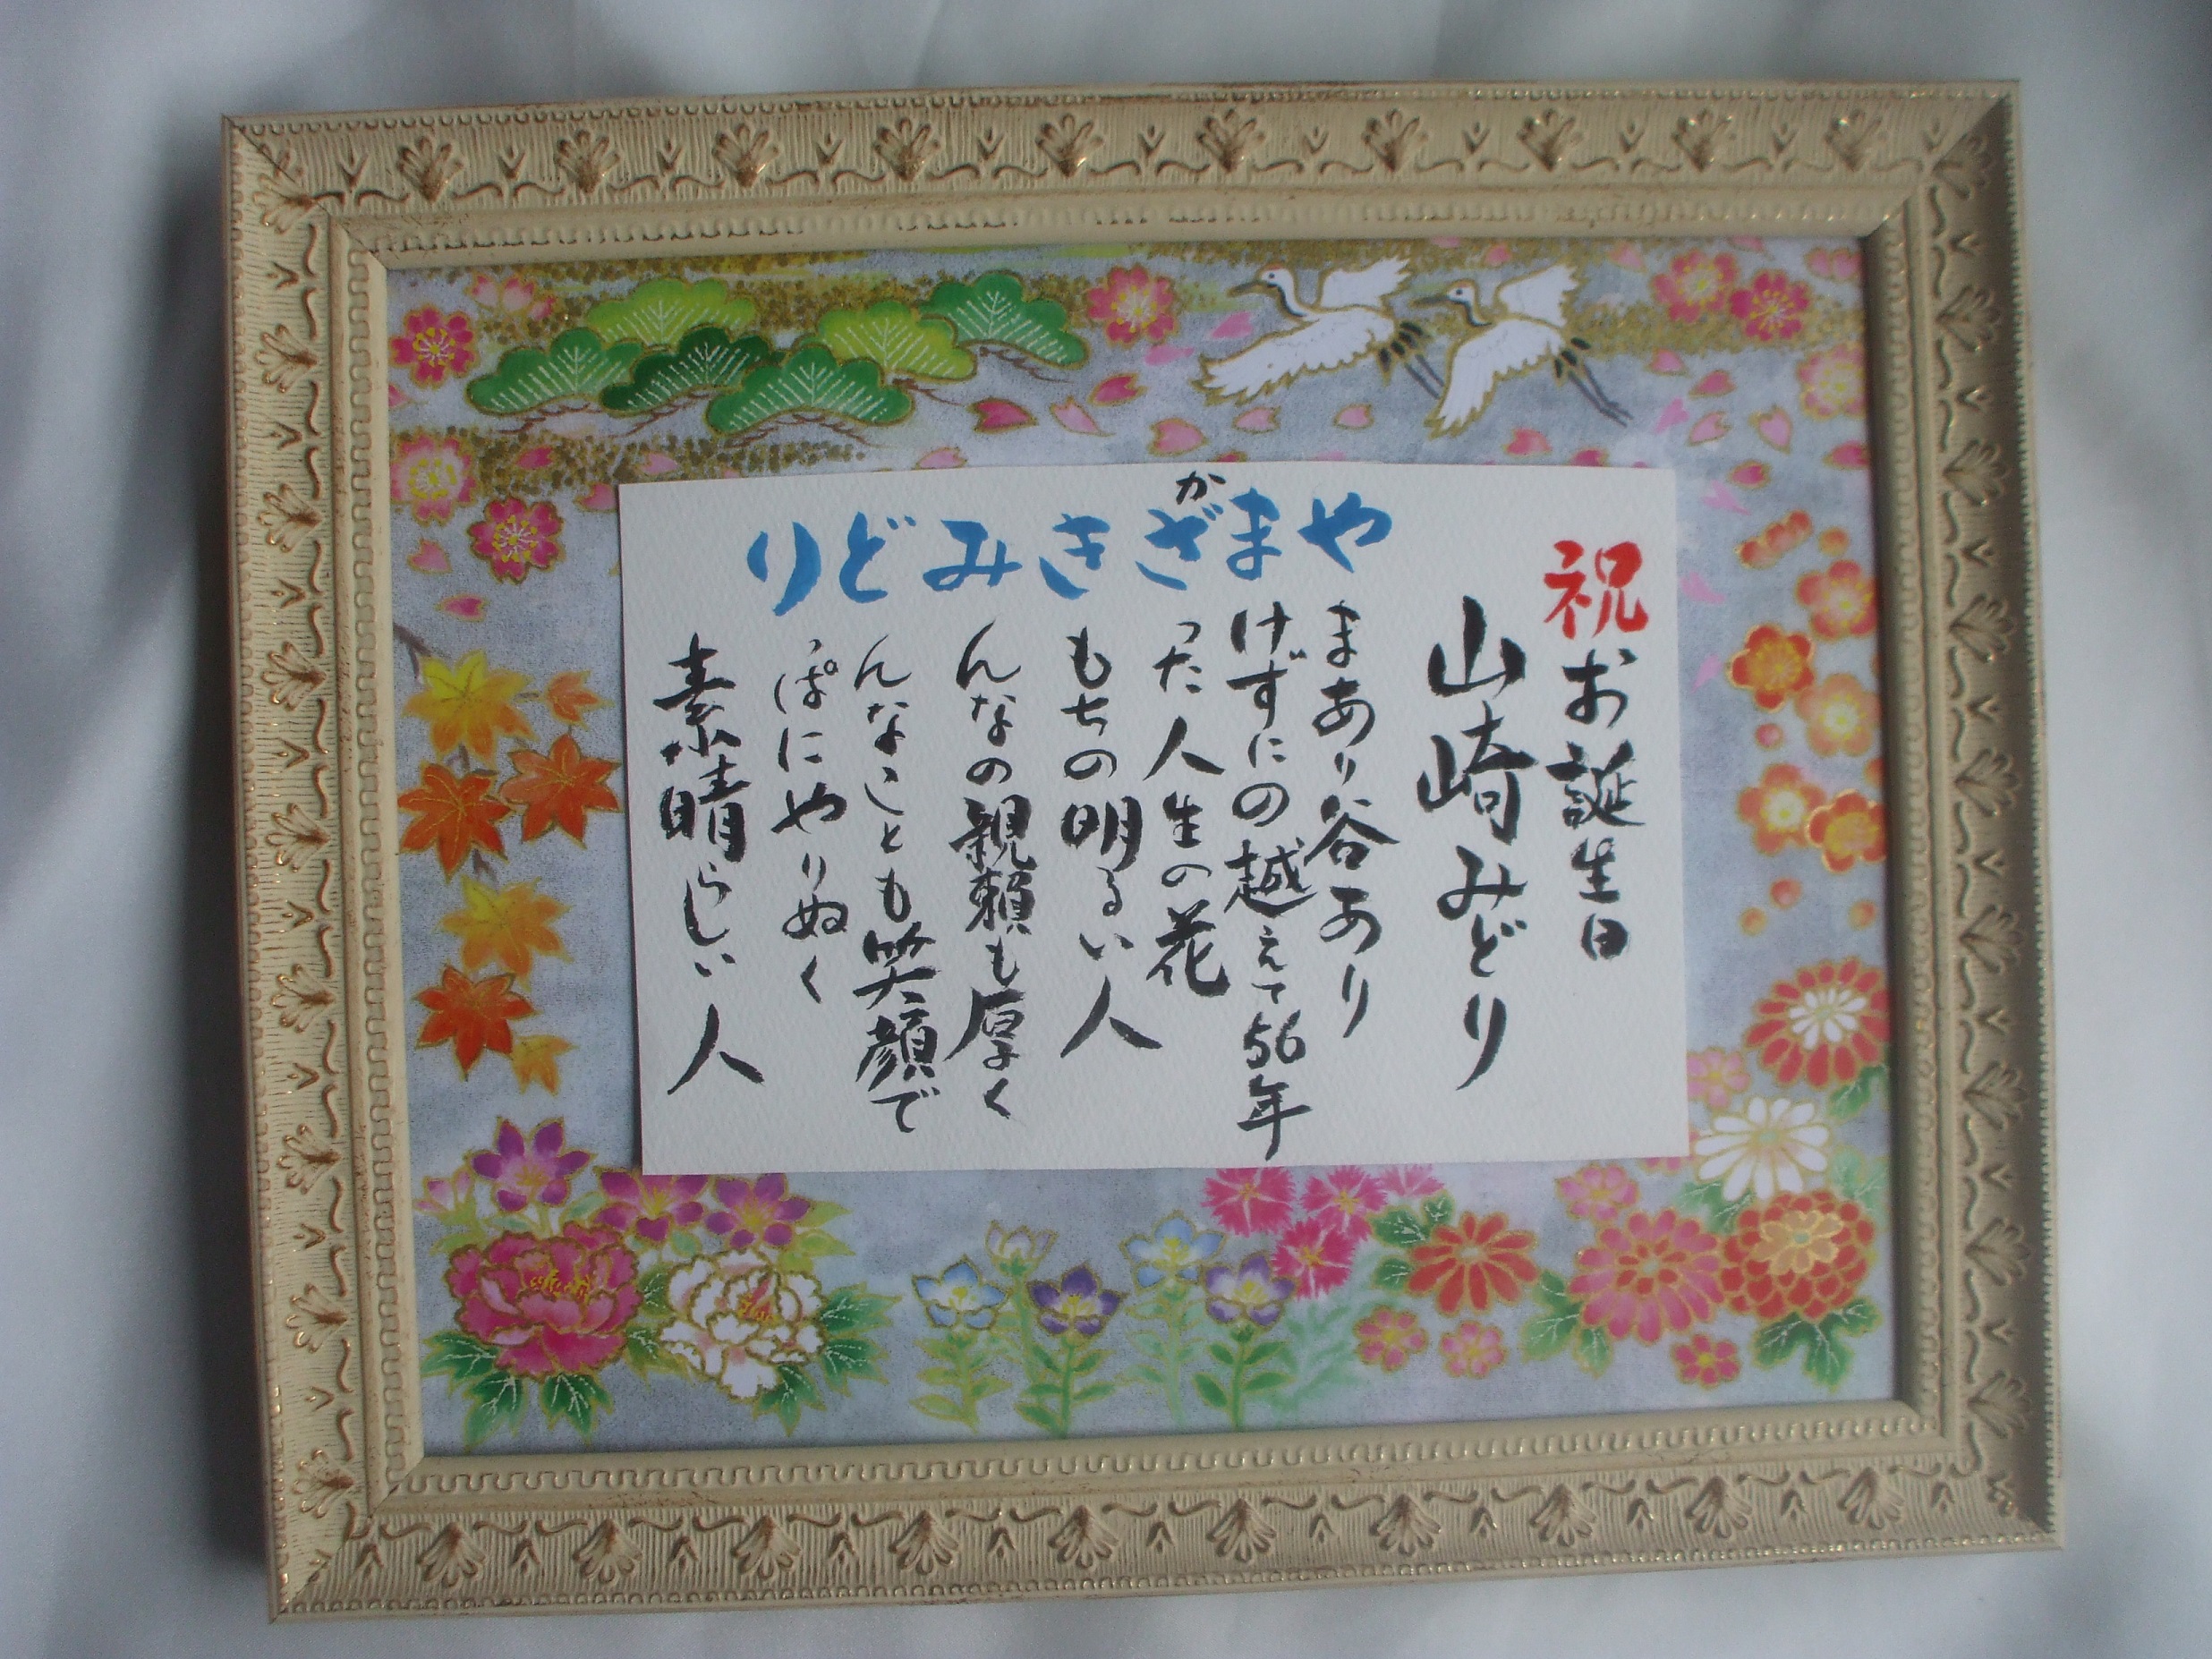 祝お誕生日
山崎みどり
やまあり谷あり
まけずにの越えて56年
かざった人生の花
きもちの明るい人
みんなの親頼も厚く
どんなことも笑顔で
りっぱにやりぬく
素晴らしい人